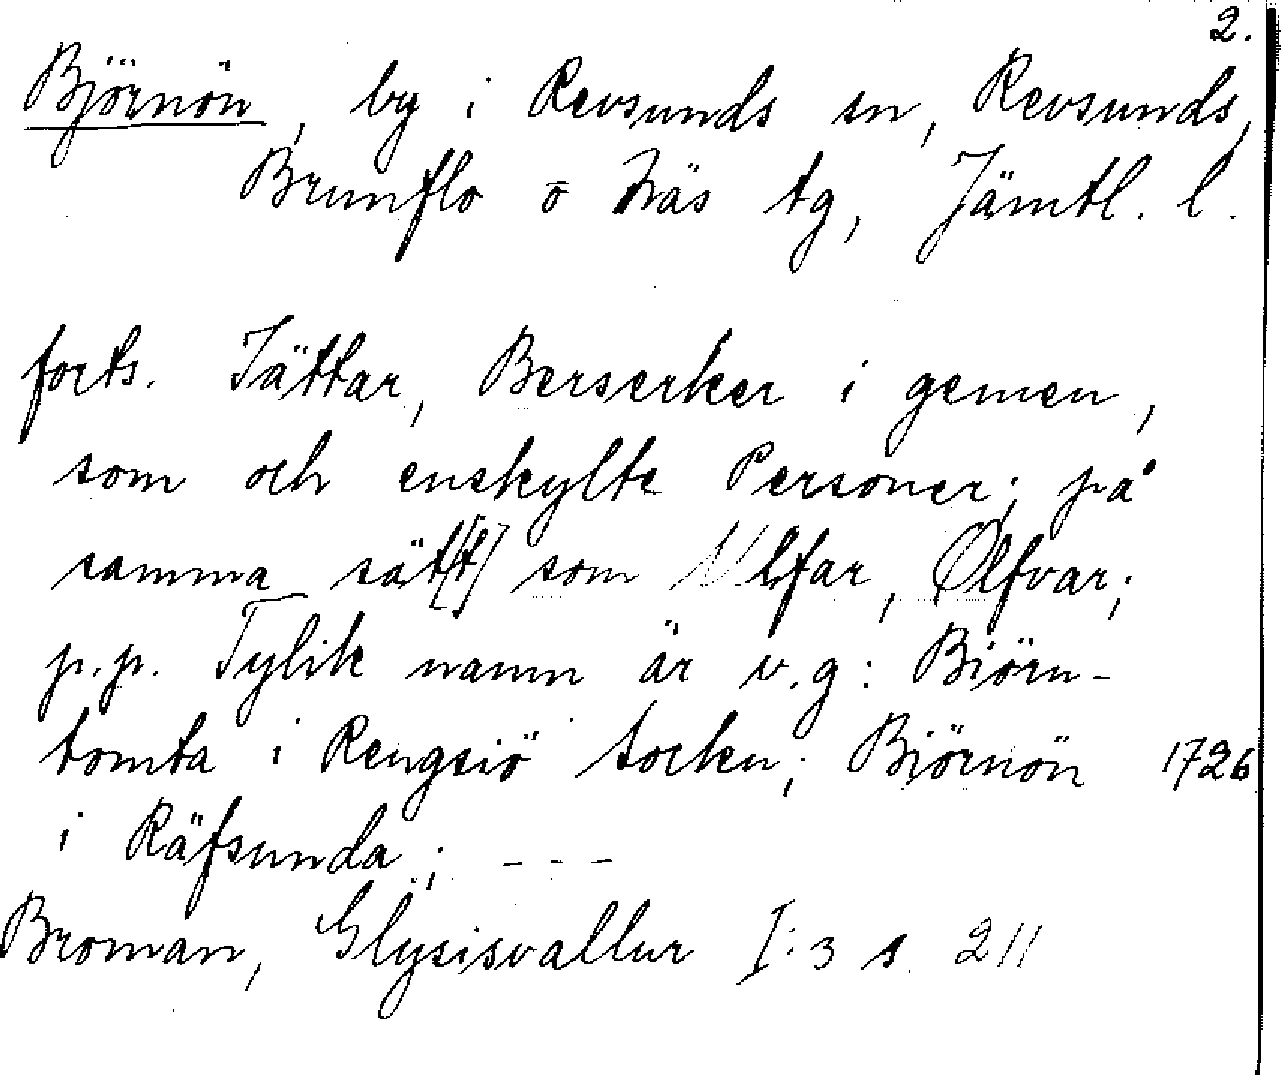 2.
Björnön, by i Revsunds sn, Revsunds,
Brunflo o Näs tg, Jämtl. l.
forts. Jättar, Berserker i gemen,
som och enskylte Personer; på
samma sätt[t] som Ulfar, Ølfvar;
p.p. Tylik namn är v.g: Biörn-
tomta i Rengsiö sockn; Björnön 1726
i Räfsunda; - - -
Broman, Glysisvallur I:3 s. 211